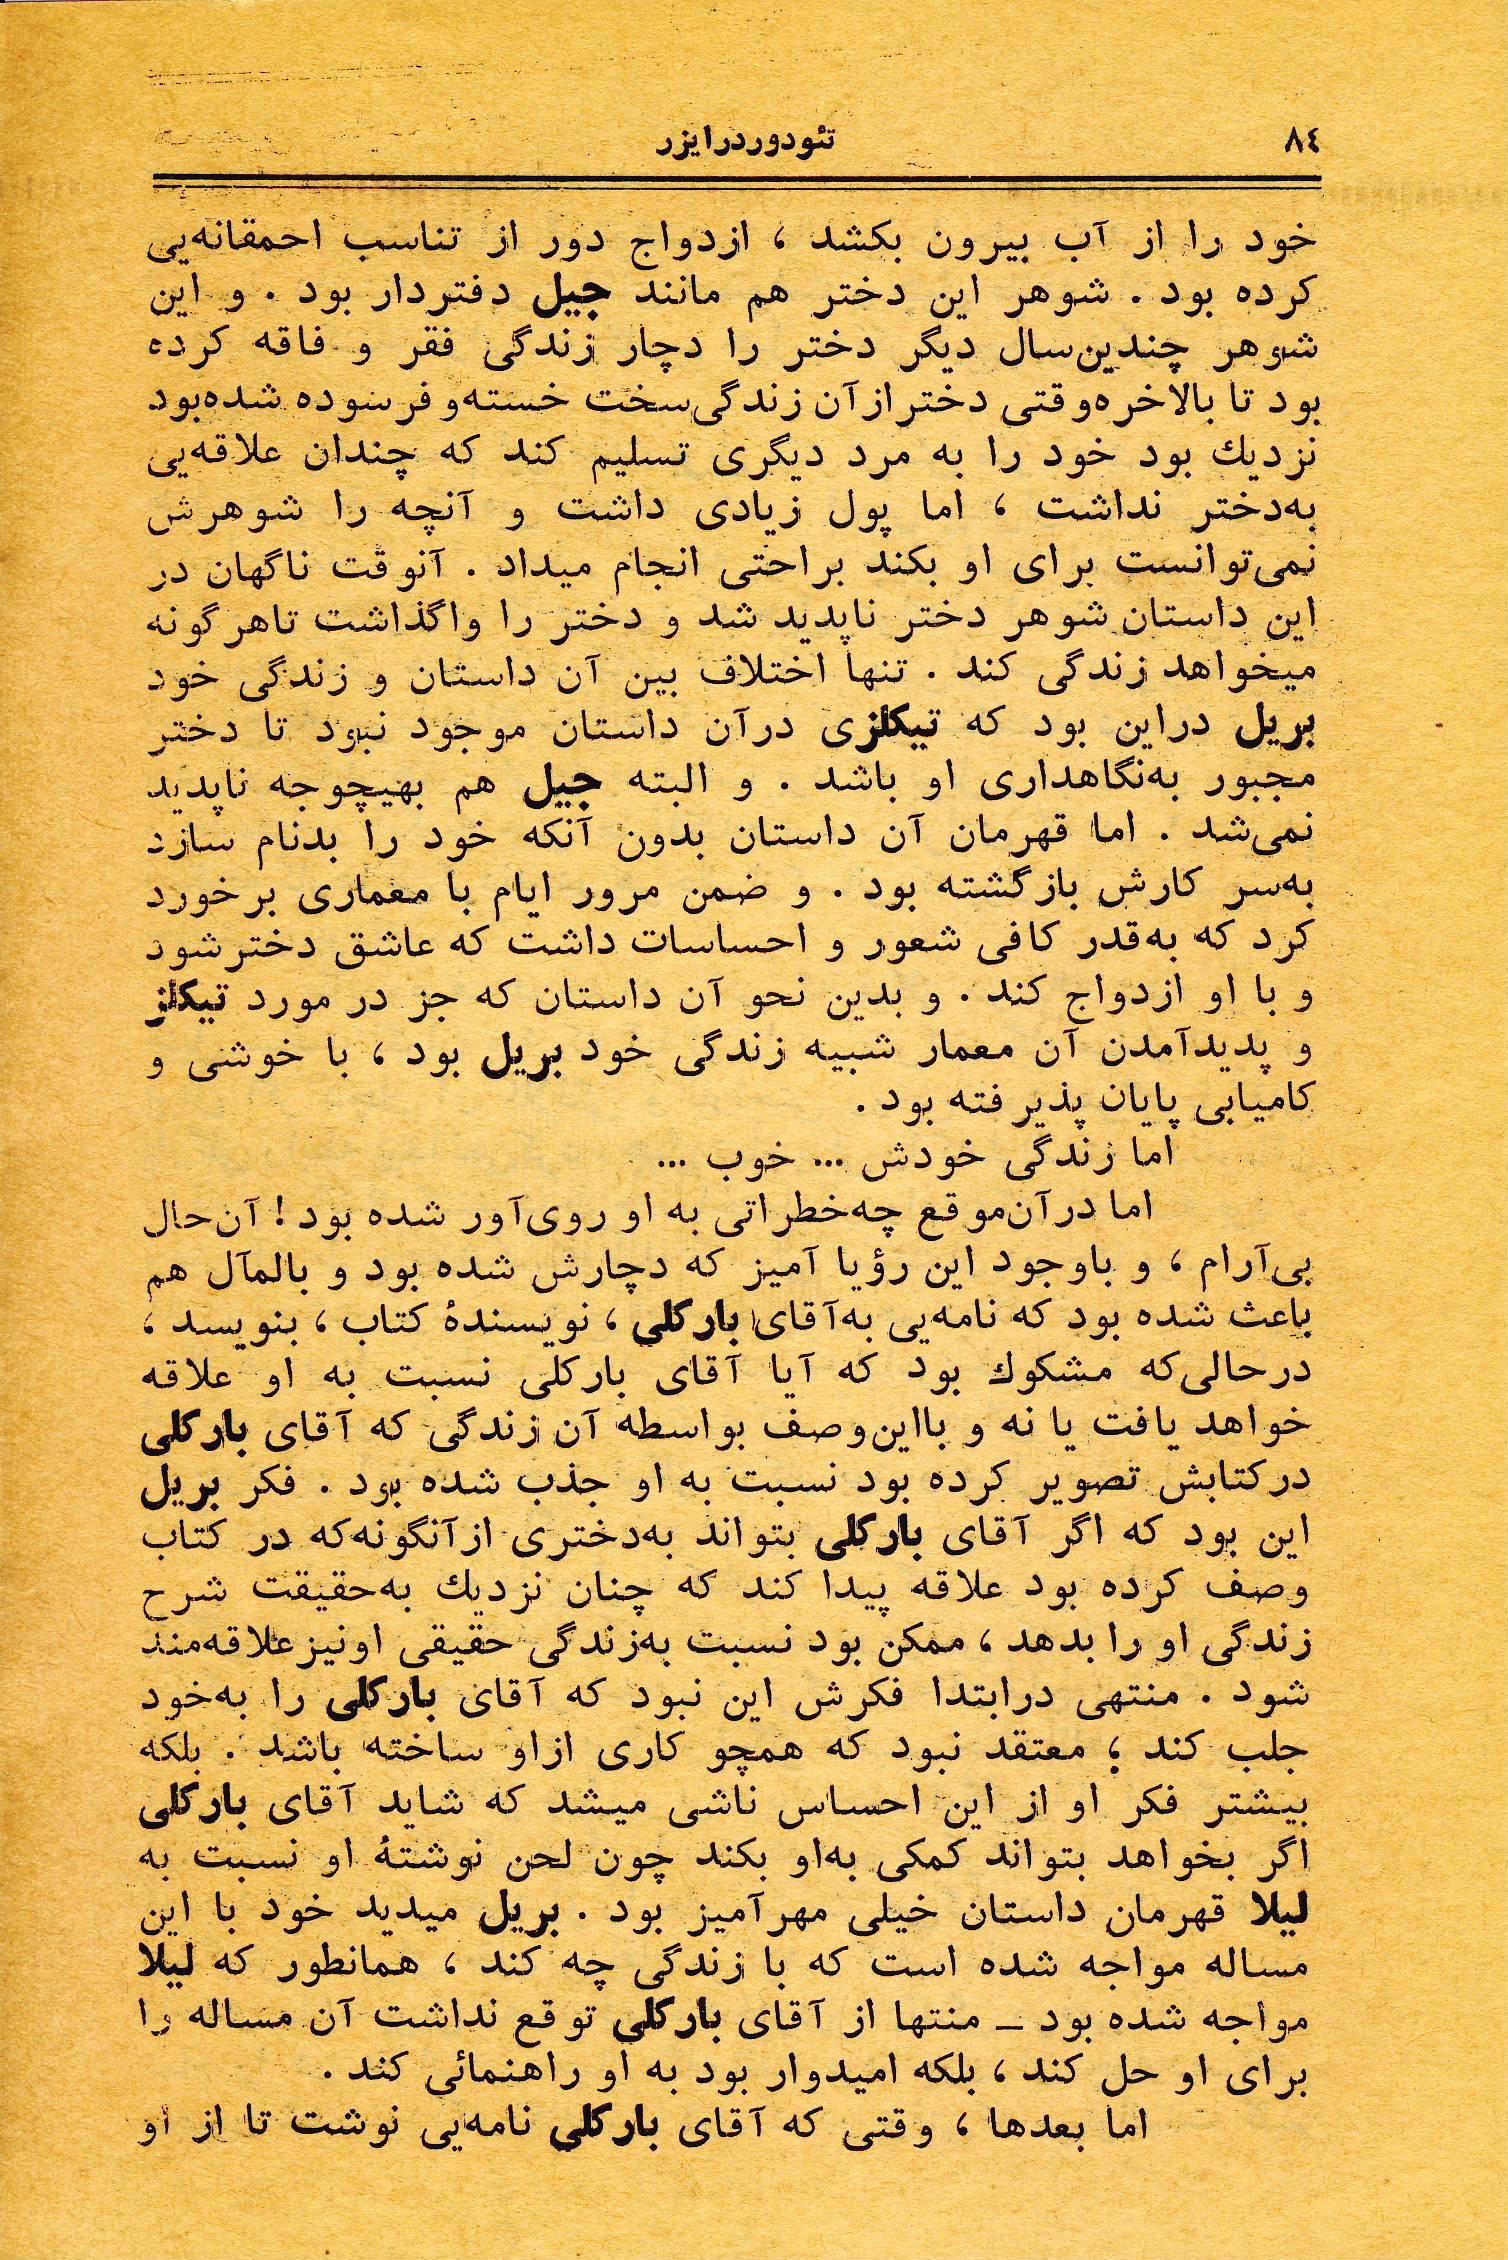 ۸٤
تئودوردرایزر
خود را از آب بیرون بکشد ، ازدواج دور از تناسب احمقانه‌یی
کرده بود . شوهر این دختر هم مانند جیل دفتردار بود . و این
شوهر چندین‌سال دیگر دختر را دچار زندگی فقر و فاقه کرده
بود تا بالاخره‌وقتی دختر از آن زندگی‌سخت خسته‌و فرسوده شده‌بود
نزدیك بود خود را به مرد دیگری تسلیم کند که چندان علاقه‌یی
به‌دختر نداشت ، اما پول زیادی داشت و آنچه را شوهرش
نمی‌توانست برای او بکند براحتی انجام میداد . آنوقت ناگهان در
این داستان شوهر دختر ناپدید شد و دختر را واگذاشت تاهرگونه
میخواهد زندگی کند . تنها اختلاف بین آن داستان و زندگی خود
بریل دراین بود که تیکلزی درآن داستان موجود نبود تا دختر
مجبور به‌نگاهداری او باشد . و البته جیل هم بهیچوجه ناپدید
نمی‌شد . اما قهرمان آن داستان بدون آنکه خود را بدنام سازد
به‌سر کارش بازگشته بود . و ضمن مرور ایام با معماری برخورد
کرد که به‌قدر کافی شعور و احساسات داشت که عاشق دخترشود
و با او ازدواج کند . و بدین نحو آن داستان که جز در مورد تیکلز
و پدیدآمدن آن معمار شبیه زندگی خود بریل بود ، با خوشی و
کامیابی پایان پذیرفته بود .
اما زندگی خودش ... خوب ...
اما درآن‌موقع چه‌خطراتی به او روی‌آور شده بود ! آن‌حال
بی‌آرام ، و باوجود این رؤیا آمیز که دچارش شده بود و بالمآل هم
باعث شده بود که نامه‌یی به‌آقای بارکلی ، نویسندۀ کتاب ، بنویسد ،
درحالی‌که مشکوك بود که آیا آقای بارکلی نسبت به او علاقه
خواهد یافت یا نه و بااین‌وصف بواسطه آن زندگی که آقای بارکلی
درکتابش تصویر کرده بود نسبت به او جذب شده بود . فکر بریل
این بود که اگر آقای بارکلی بتواند به‌دختری ازآنگونه‌که در کتاب
وصف کرده بود علاقه پیدا کند که چنان نزدیك به‌حقیقت شرح
زندگی او را بدهد ، ممکن بود نسبت به‌زندگی حقیقی اونیزعلاقه‌مند
شود . منتهی درابتدا فکرش این نبود که آقای بارکلی را به‌خود
جلب کند ؛ معتقد نبود که همچو کاری ازاو ساخته باشد . بلکه
بیشتر فکر او از این احساس ناشی میشد که شاید آقای بارکلی
اگر بخواهد بتواند کمکی به‌او بکند چون لحن نوشتۀ او نسبت به
لیلا قهرمان داستان خیلی مهرآمیز بود . بریل میدید خود با این
مساله مواجه شده است که با زندگی چه کند ، همانطور که لیلا
مواجه شده بود ــ منتها از آقای بارکلی توقع نداشت آن مساله را
برای او حل کند ، بلکه امیدوار بود به او راهنمائی کند .
اما بعدها ، وقتی که آقای بارکلی نامه‌یی نوشت تا از او